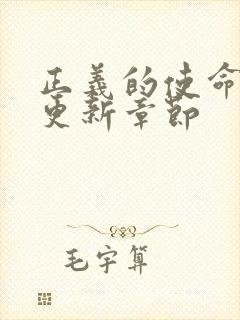 正義的使命
更新章節
毛宇算